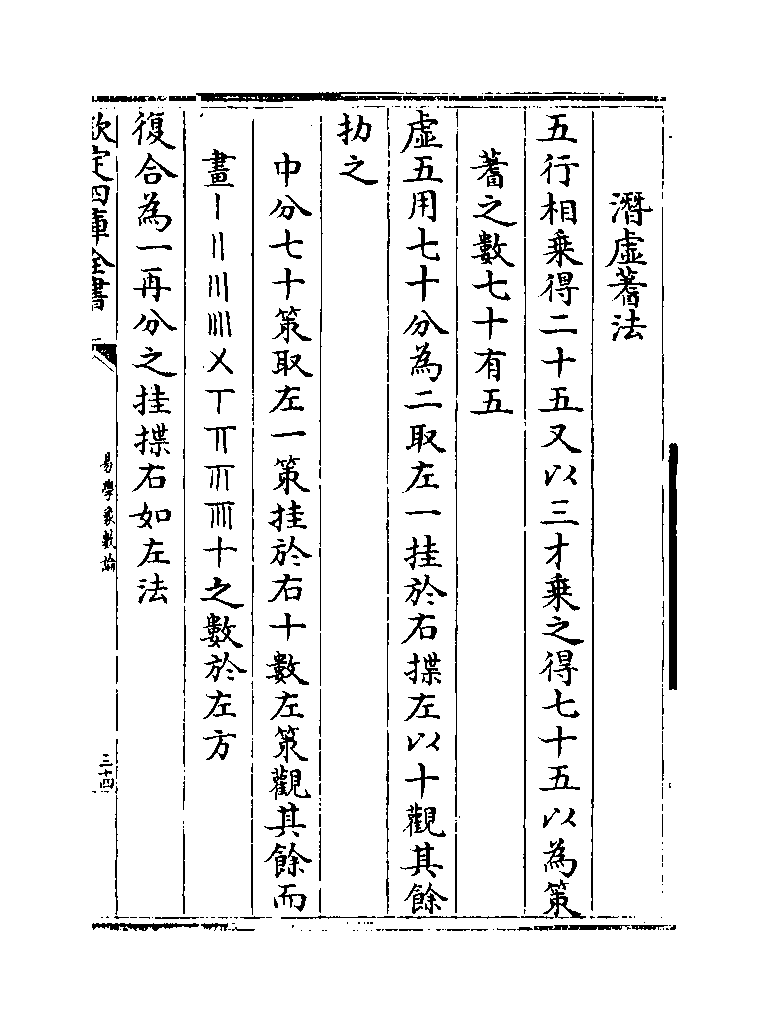 潛虛蓍法
五行相乗得二十五又以三才乗之得七十五以為策
蓍之數七十有五
虛五用七十分為二取左一挂於右揲左以十觀其餘
扐之
中分七十策取左一策挂於右十數左策觀其餘而
畫〡〢〣𝍣〤丅〧〨𝍬十之數於左方
復合為一再分之挂揲右如左法
欽定四庫全書
易學象數論
三十四